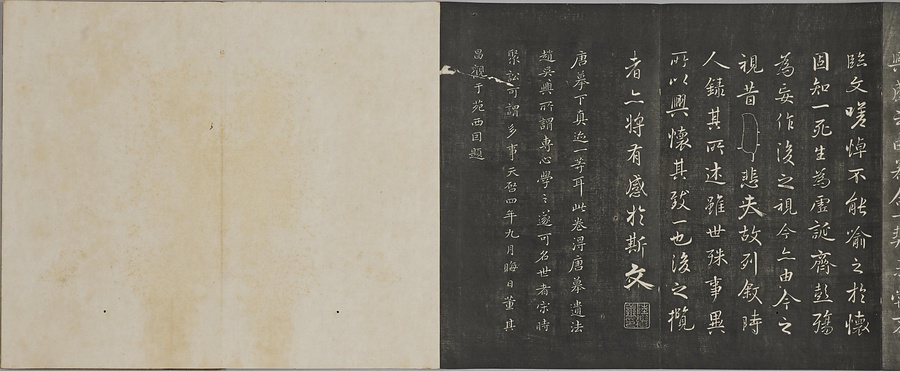 臨文嗟悼不能喻之於懷
固知一死生為虛誕齊彭殤
為妄作後之視今亦由今之
視昔悲夫故列敘時
人錄其所述雖世殊事異
所以興懷其致一也後之攬
者亦將有感於斯文
唐摹下真迹一等耳此卷得唐摹遺法
趙吳興所謂專心學之遂可名世者宗時
聚訟可謂多事天啓四年九月晦日董其
昌觀于苑西因題